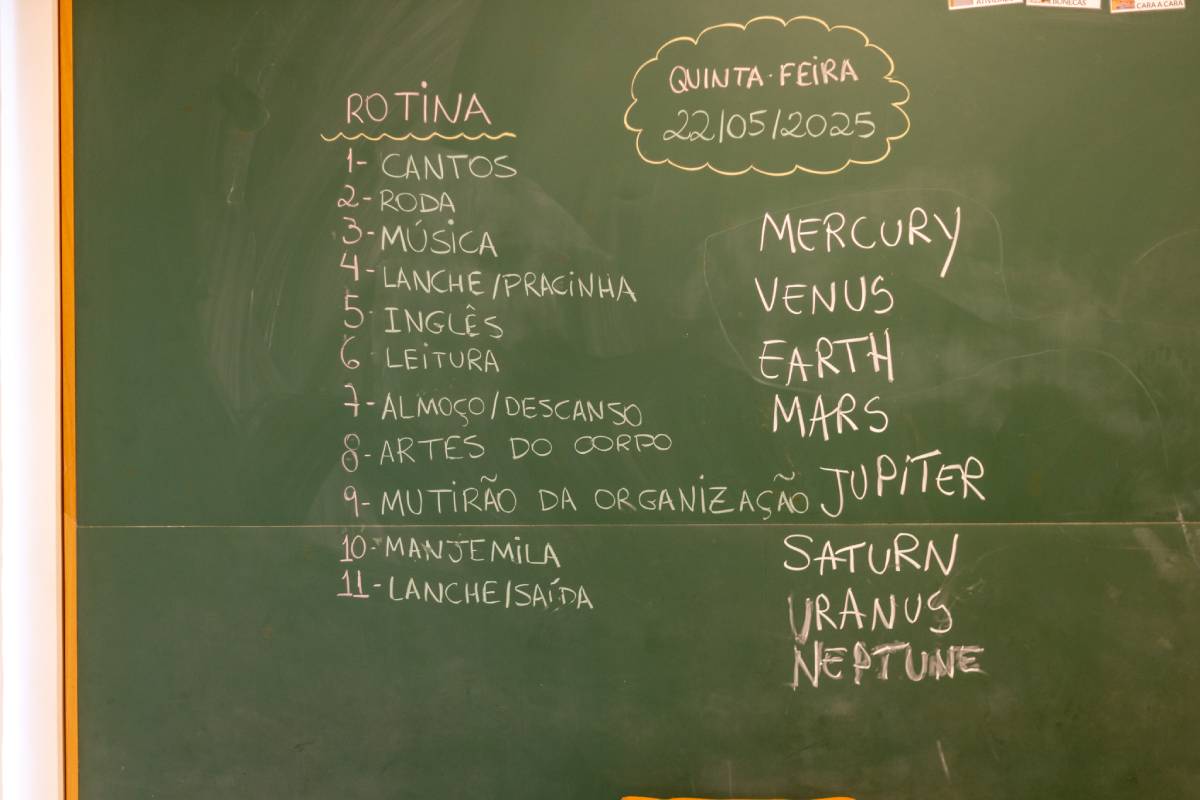 BONECAS
CARA A CARA
QUINTA-FEIRA
22/05/2025
ROTINA
1- CANTOS
2- RODA
3- MÚSICA
4- LANCHE/PRACINHA
5- INGLÊS
6- LEITURA
7- ALMOÇO/DESCANSO
8- ARTES DO CORPO
9- MUTIRÃO DA ORGANIZAÇÃO
10- MANJEMILA
11- LANCHE/SAÍDA
MERCURY
VENUS
EARTH
MARS
JUPITER
SATURN
URANUS
NEPTUNE